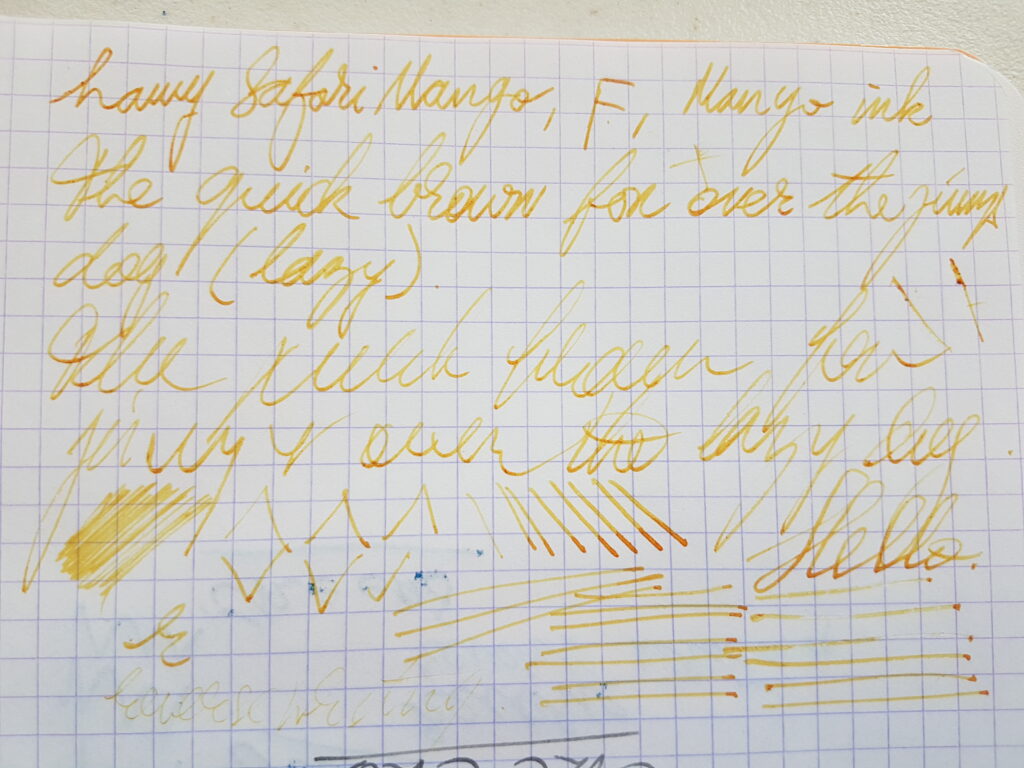 Lamy Safari Mango, F, Mango ink
The quick brown fox over the jump
dog (lazy)
The quick brown fox
jump over the lazy dog.
Hello.
reverse writing.